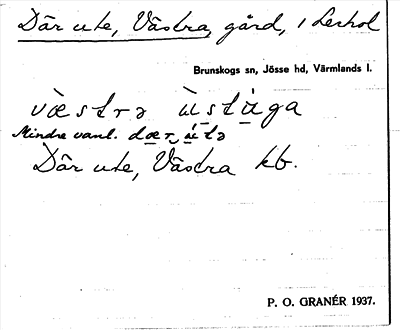 Där ute, Västra, gård, i Lerhol
Brunskogs sn, Jösse hd, Värmlands l.
væ̀strə ù̱stà̱ga
Mindre vanl. dæ̱r ú̱tə
Där ute, Västra kb.
P. O. GRANÉR 1937.